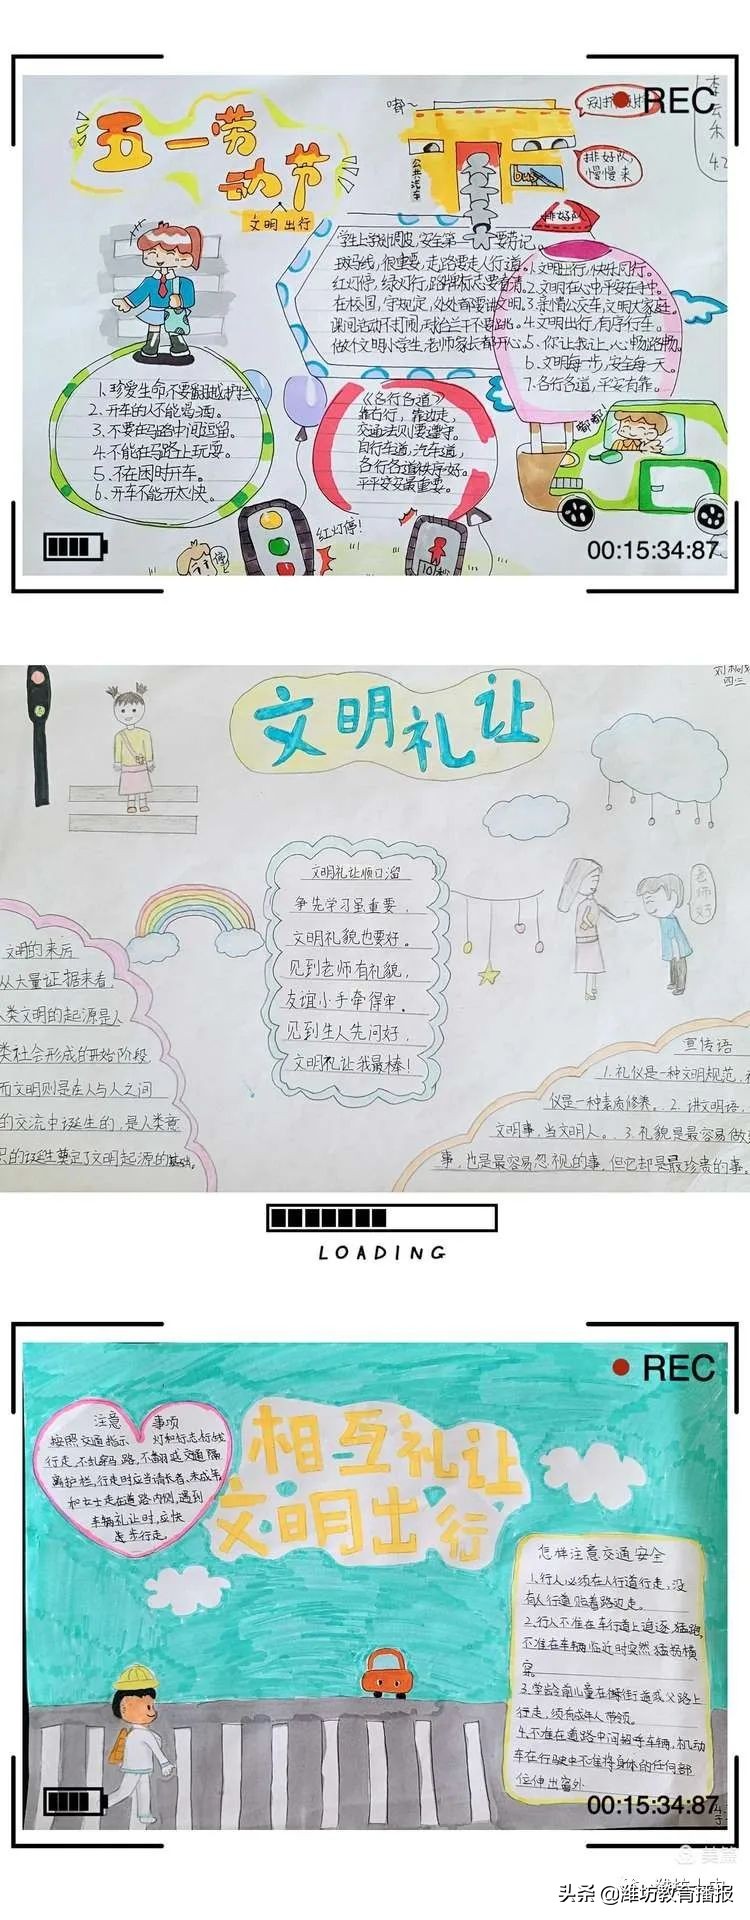 REC
五一劳动节
文明出行
公共汽车
bus
排好队,
慢慢来
排好队
学生上学别调皮,安全第一要劳记。
斑马线,很重要,走路要走人行道。
红灯停,绿灯行,路牌标志要看清。
在校园,守规定,处处都要讲文明。
课间活动不打闹,
做个文明小学生,老师家长都开心。
1.文明出行,快乐同行。
2.文明在心中平安在手中。
3.亲情公交车,文明大家庭。
4.文明出行,有序行车。
5.你让我让,心畅路畅。
6.文明每一步,安全每一天。
7.各行各道,平安有靠。
1.珍爱生命,不要翻越护拦。
2.开车的人不能喝酒。
3.不要在马路中间逗留。
4.不能在马路上玩耍。
5.不在困时开车。
6.开车不能开太快。
《各行各道》
靠右行,靠边走,
交通法则要遵守。
自行车道,汽车道,
各行各道秩序好。
平平安安最重要。
嘟嘟!
红灯停!
10秒
00:15:34:87
四三
文明礼让
老师好
文明礼让顺口溜
争先学习虽重要,
文明礼貌也要好。
见到老师有礼貌,
友谊小手牵得牢。
见到生人先问好,
文明礼让我最棒!
文明的来历
从大量证据来看,
人类文明的起源是人
类社会形成的开始阶段
而文明则是在人与人之间
的交流中诞生的,是人类意
识的诞生奠定了文明起源的基础。
宣传语
1.礼仪是一种文明规范,
仪是一种素质修养。2.讲文明语,
文明事,当文明人。3.礼貌是最容易做
事,也是最容易忽视的事,但它却是最珍贵的事。
LOADING
REC
相互礼让
文明出行
注意事项
按照交通指示灯和行走标线
行走,不乱穿马路,不翻越交通隔
离护栏,行走时应当请长者、未成年
和女士走在道路内侧,遇到
车辆礼让时,应快
速步行走。
怎样注意交通安全
1.行人必须在人行道行走,没
有人行道贴着路边走。
2.行人不准在车行道上追逐,猛跑,
不准在车辆临近时突然猛拐横
穿。
3.学龄前儿童在街道或公路上
行走,须有成年人带领。
4.不准在道路中间招呼车辆,机动
车在行驶中不准将身体的任何部
位伸出窗外
00:15:34:87
美篇
头条 @潍坊教育播报